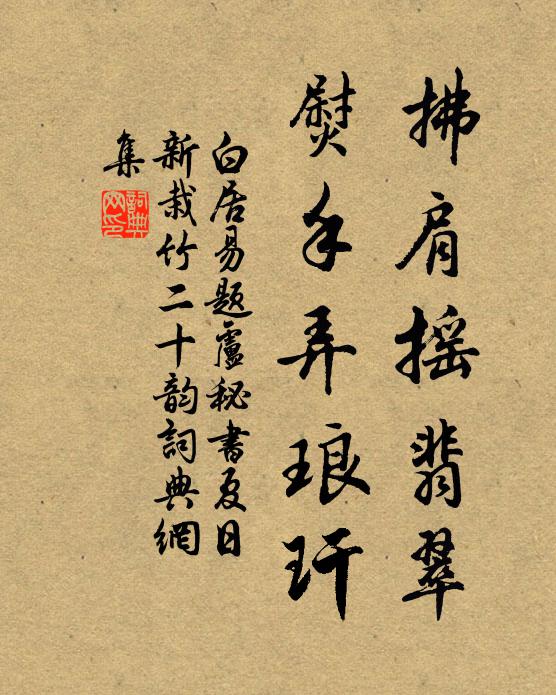 拂肩摇翡翠
熨手弄琅玕
白居易题盧秘書夏日
新栽竹二十韵詞典網
集
詞典
网印